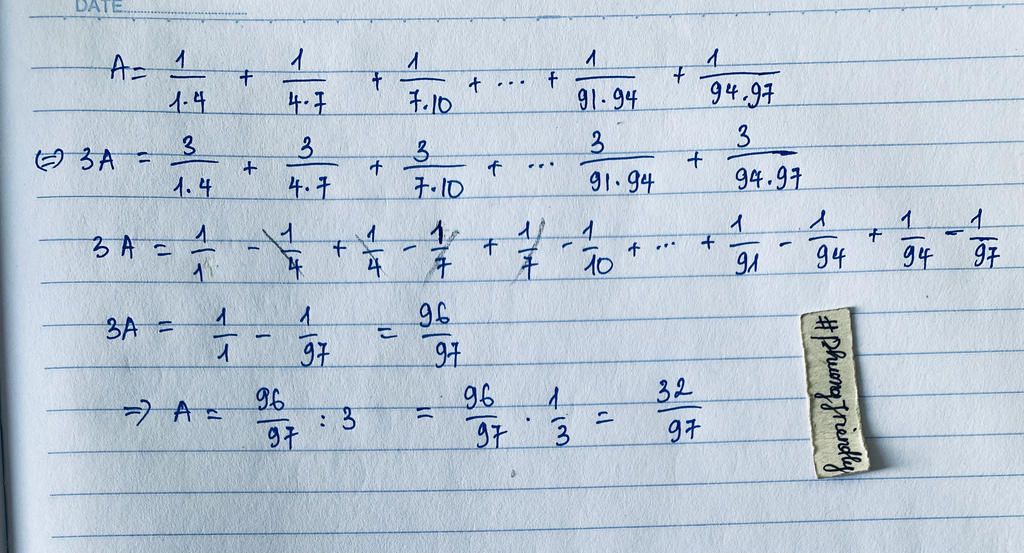 DATE
A = 1/1.4 + 1/4.7 + 1/7.10 + ... + 1/91.94 + 1/94.97
⇔ 3A = 3/1.4 + 3/4.7 + 3/7.10 + ... 3/91.94 + 3/94.97
3A = 1/1 - 1/4 + 1/4 - 1/7 + 1/7 - 1/10 + ... + 1/91 - 1/94 + 1/94 - 1/97
3A = 1/1 - 1/97 = 96/97
⇒ A = 96/97 : 3 = 96/97 . 1/3 = 32/97
#PhuongFriendly